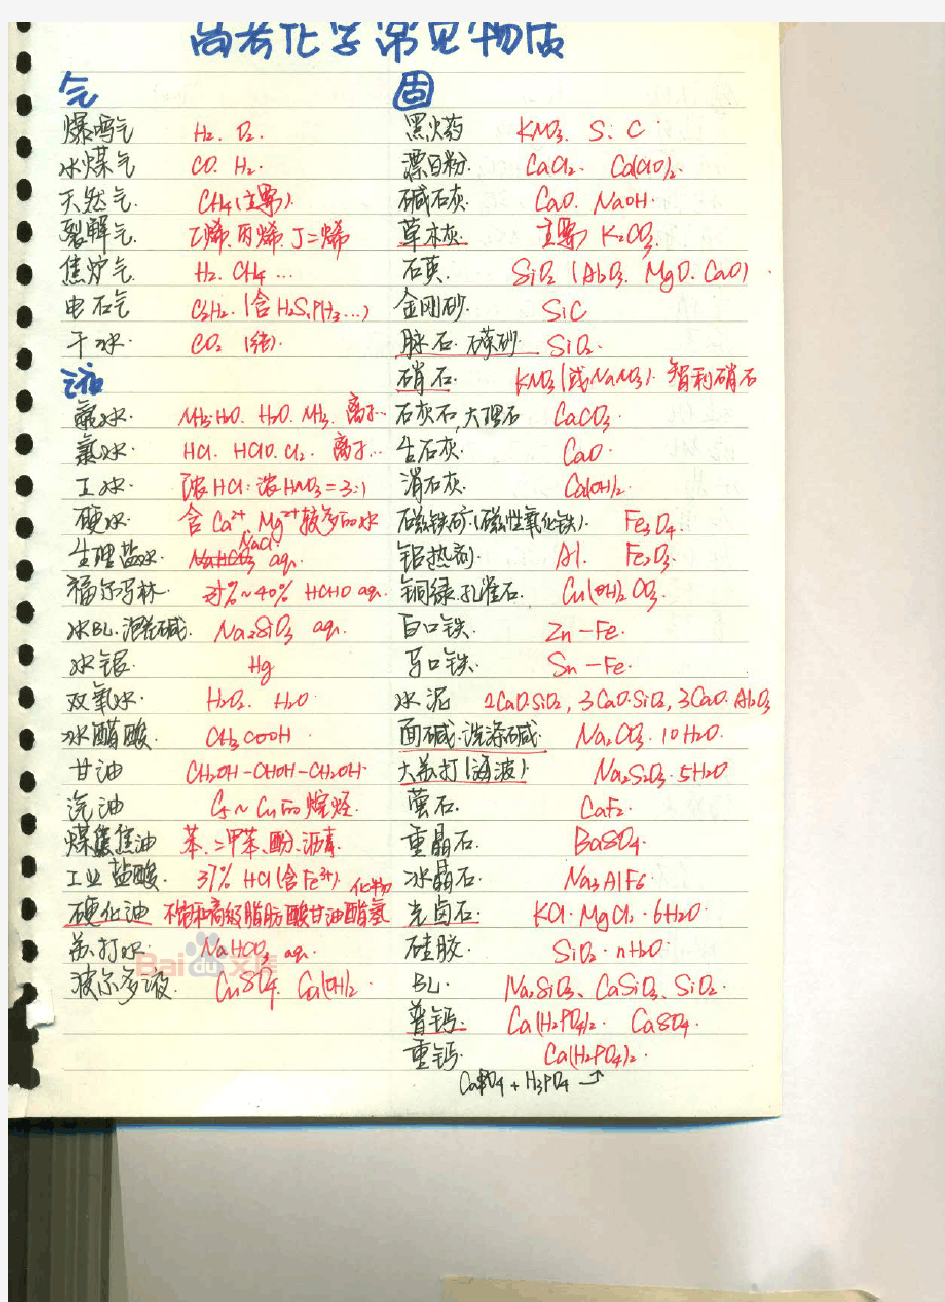 高考化学常见物质
气
爆鸣气 H₂. O₂.
水煤气 CO. H₂.
天然气. CH₄(主要).
裂解气. 乙烯.丙烯.丁二烯
焦炉气 H₂. CH₄ ...
电石气 C₂H₂. (含H₂S,PH₃...)
干冰. CO₂ (结).
液
氨水. NH₃·H₂O. H₂O. NH₃. 离子..
氯水. HCl. HClO. Cl₂. 离子...
王水. 浓HCl:浓HNO₃=3:1
硬水. 含Ca²⁺ Mg²⁺较多的水
生理盐水. NaCl aq.
福尔马林. 37%~40% HCHO aq.
水BL.泡花碱. Na₂SiO₃ aq.
水银. Hg
双氧水. H₂O₂. H₂O.
冰醋酸. CH₃COOH.
甘油 CH₂OH-CHOH-CH₂OH.
汽油 C₅~C₁₁的烷烃.
煤焦油 苯、二甲苯、酚、沥青.
工业盐酸. 37% HCl(含Fe³⁺).
硬化油 不饱和高级脂肪酸甘油酯氢化物
苏打水. NaHCO₃ aq.
波尔多液. CuSO₄. Ca(OH)₂.
固
黑火药 KNO₃. S. C.
漂白粉. CaCl₂. Ca(ClO)₂.
碱石灰. CaO. NaOH.
草木灰. 主要) K₂CO₃.
石英. SiO₂ (Al₂O₃. MgO. CaO).
金刚砂. SiC
脉石.石英砂. SiO₂.
硝石. KNO₃(或NaNO₃). 智利硝石
石灰石,大理石 CaCO₃.
生石灰. CaO.
消石灰. Ca(OH)₂.
磁铁矿.(磁性氧化铁). Fe₃O₄
铝热剂. Al. Fe₂O₃.
铜绿.孔雀石. Cu(OH)₂ CO₃.
白口铁. Zn-Fe.
马口铁. Sn-Fe.
水泥 2CaO·SiO₂, 3CaO·SiO₂, 3CaO·Al₂O₃
面碱.洗涤碱. Na₂CO₃·10H₂O.
大苏打(海波). Na₂S₂O₃·5H₂O
萤石. CaF₂.
重晶石. BaSO₄.
冰晶石. Na₃AlF₆.
光卤石. KCl·MgCl₂·6H₂O.
硅胶. SiO₂·nH₂O.
BL. Na₂SiO₃、CaSiO₃、SiO₂.
普钙. Ca(H₂PO₄)₂. CaSO₄.
重钙. Ca(H₂PO₄)₂.
+ H₃PO₄
Baidu文库